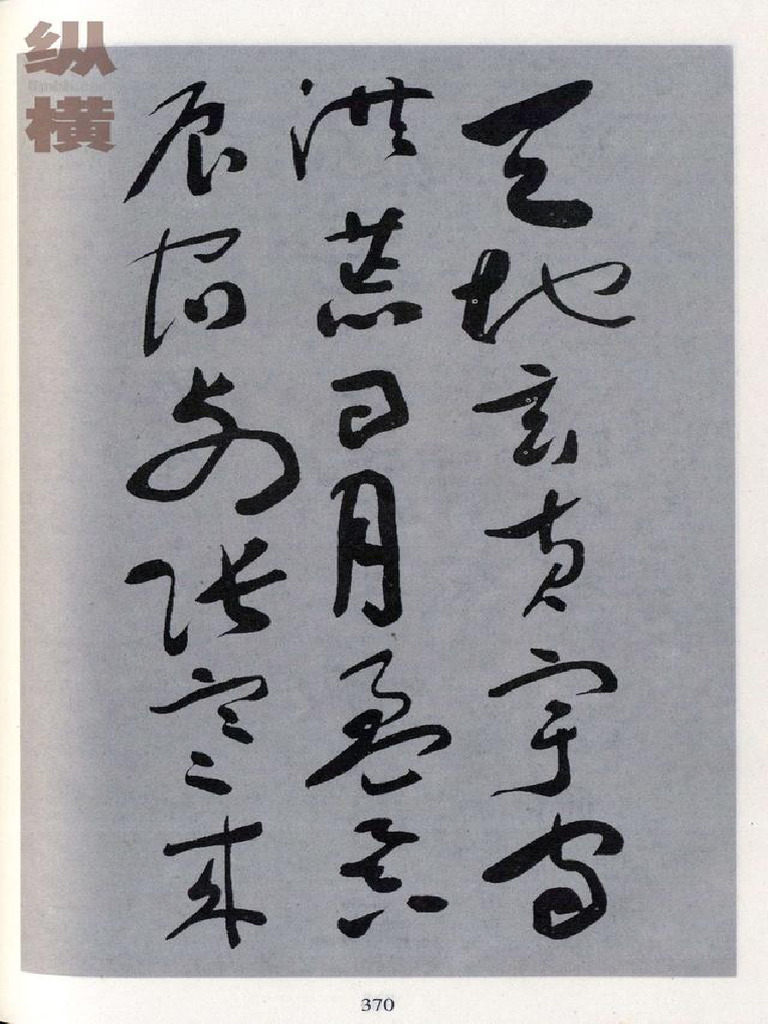 纵横
天地玄黄宇宙
洪荒日月盈昃
辰宿列张寒来
370